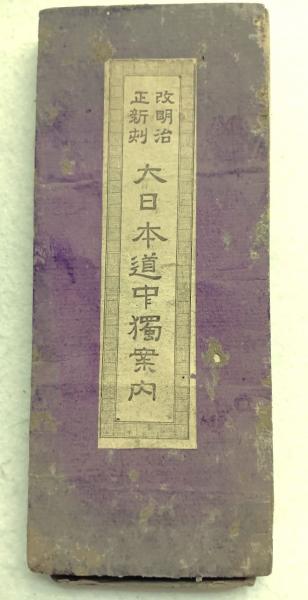 明治新刻
改正
大日本道中獨案内